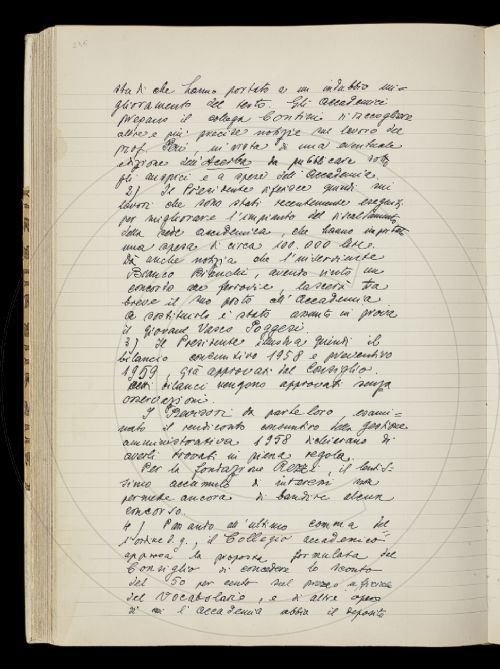 236
studi che hanno portato a un indubbio mi=
glioramento del testo. Gli Accademici
pregano il collega Contini di raccogliere
altre e più precise notizie sul lavoro del
prof. , in vista di una eventuale
edizione dell'Acerba da pubblicare sotto
gli auspici e a spese dell'Accademia.
2) Il Presidente riferisce quindi sui
lavori che sono stati recentemente eseguiti
per migliorare l'impianto del riscaldamento
della sede accademica, che hanno importato
una spesa di circa 100.000 lire.
Dà anche notizia che l'inserviente
Branco Bianchi, avendo vinto un
concorso alle ferrovie, lascerà tra
breve il suo posto all'Accademia.
A sostituirlo è stato assunto in prova
il giovane Vasco Poggesi.
3) Il Presidente illustra quindi il
bilancio consuntivo 1958 e preventivo
1959, già approvati dal Consiglio.
bilanci vengono approvati senza
osservazioni.
I Revisori da parte loro, esami=
nato il rendiconto consuntivo della gestione
amministrativa 1958 dichiarano di
averli trovati in piena regola.
Per la fondazione Rezzi, il lentis=
simo accumulo di interessi non
permette ancora di bandire alcun
concorso.
4) Passando all'ultimo comma del
l'ordine d. g., il Collegio accademico
approva la proposta formulata dal
Consiglio di concedere lo sconto
del 50 per cento sul prezzo
del Vocabolario, e di altre opere
di cui l'Accademia abbia il deposito